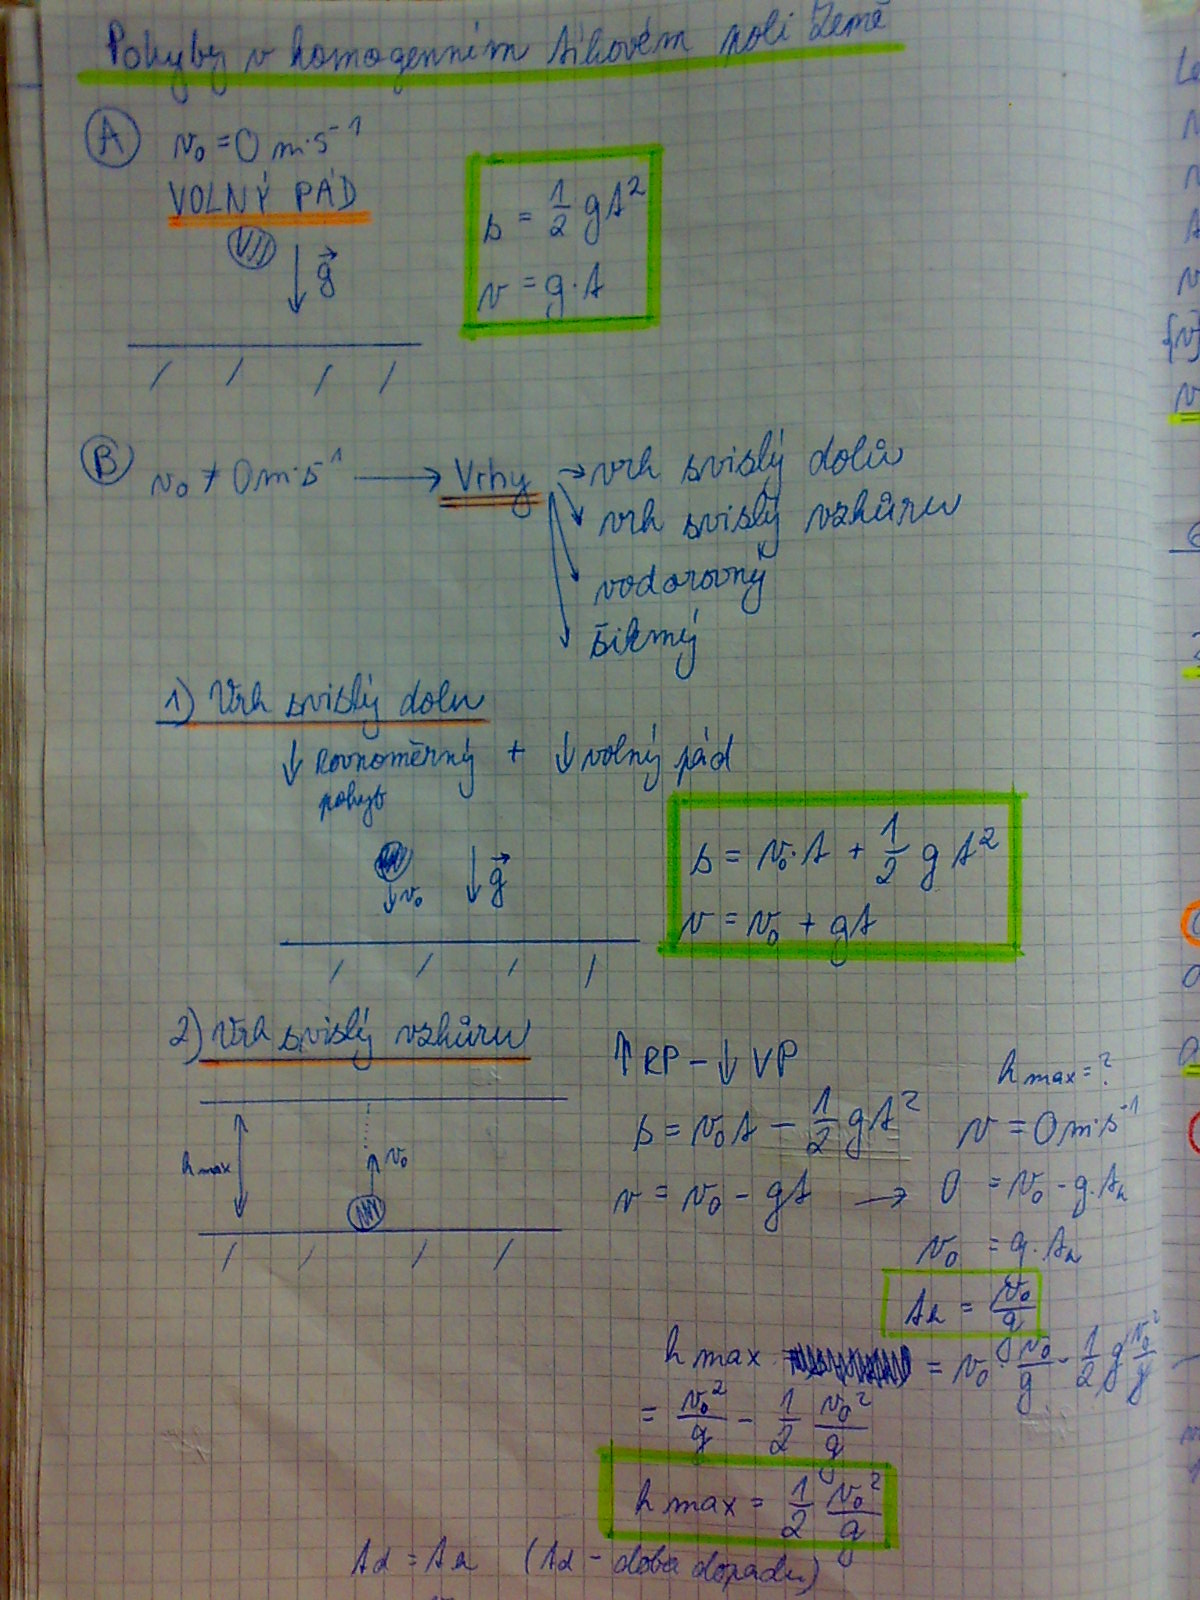 Pohyby v homogenním tíhovém poli Země
A v₀ = 0 m·s⁻¹
VOLNÝ PÁD
g⃗
s = 1/2 gt²
v = g·t
B v₀ ≠ 0 m·s⁻¹ → Vrhy → vrh svislý dolů
vrh svislý vzhůru
vodorovný
šikmý
1) Vrh svislý dolu
↓ Rovnoměrný pohyb + ↓ volný pád
v₀ g⃗
s = v₀·t + 1/2 g t²
v = v₀ + gt
2) Vrh svislý vzhůru
h max
v₀
↑ RP − ↓ VP
h max = ?
s = v₀t − 1/2 gt² v = 0 m·s⁻¹
v = v₀ − gt → 0 = v₀ − g·tₕ
v₀ = g·tₕ
tₕ = v₀/g
h max = v₀ · v₀/g − 1/2 g v₀²/g
= v₀²/g − 1/2 v₀²/g
h max = 1/2 v₀²/g
td = tₕ (td - doba dopadu)